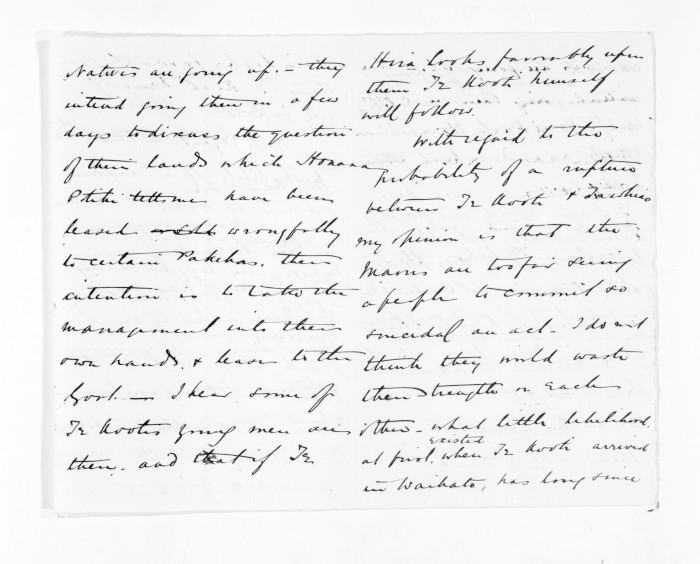 Natives are going up. - they
intend going there in a few
days to discuss the question
of their lands which Honana
Ptiki tells me have been
leased wrongfully
to certain Pakehas. their
intention is to take the
management into their
own hands. & lease to the
Govt. - I hear some of
Te Kootis young men are
there. and that if Te
Hira looks favorably upon
them Te Kooti himself
will follow.
With regard to the
probability of a rupture
between Te Kooti & Tawhiao
my opinion is that the
Maoris are too far seeing
a people to commit so
suicidal an act - I do not
think they would waste
their strength on each
other - what little likelihood,
existed
at first, when Te Kooti arrived
in Waikato, has long since